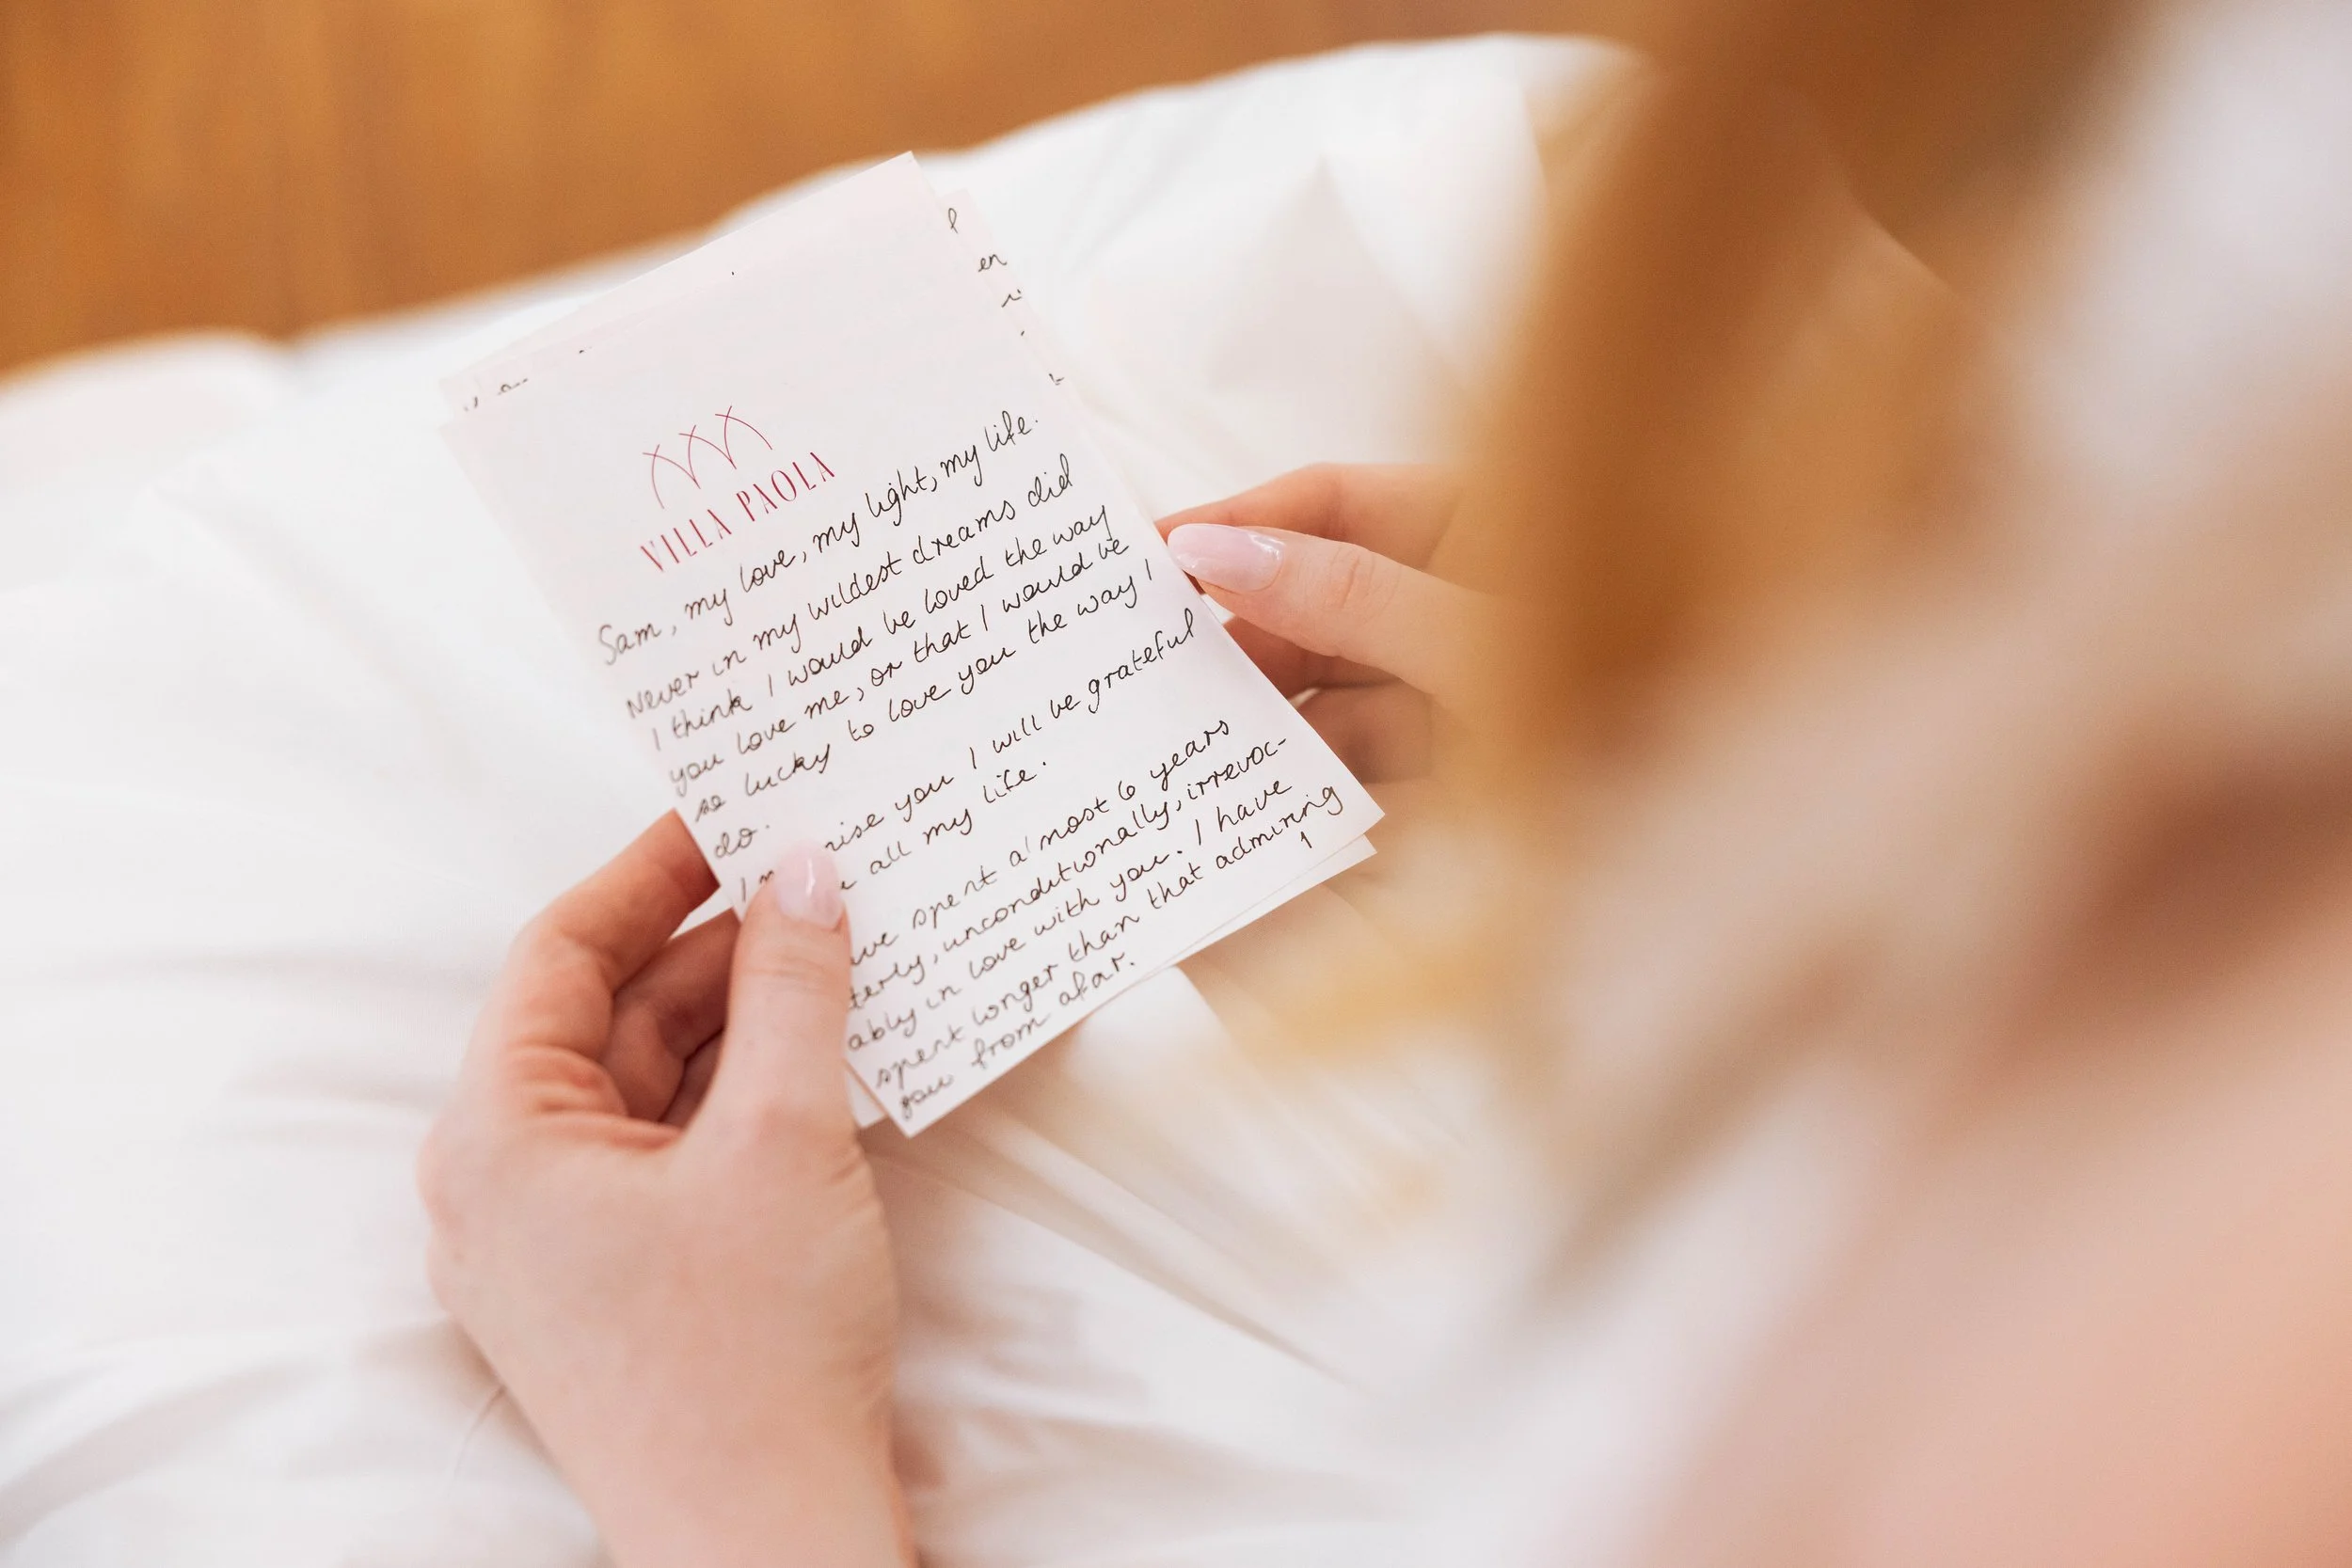 VILLA PAOLA
Sam, my love, my light, my life.
Never in my wildest dreams did
I think I would be loved the way
you love me, or that I would be
so lucky to love you the way I
do.
I rise you I will be grateful
all my life.
ve spent almost 6 years
terly, unconditionally, irrevoc-
ably in love with you. I have
spent longer than that admiring
you from afar.
1
en